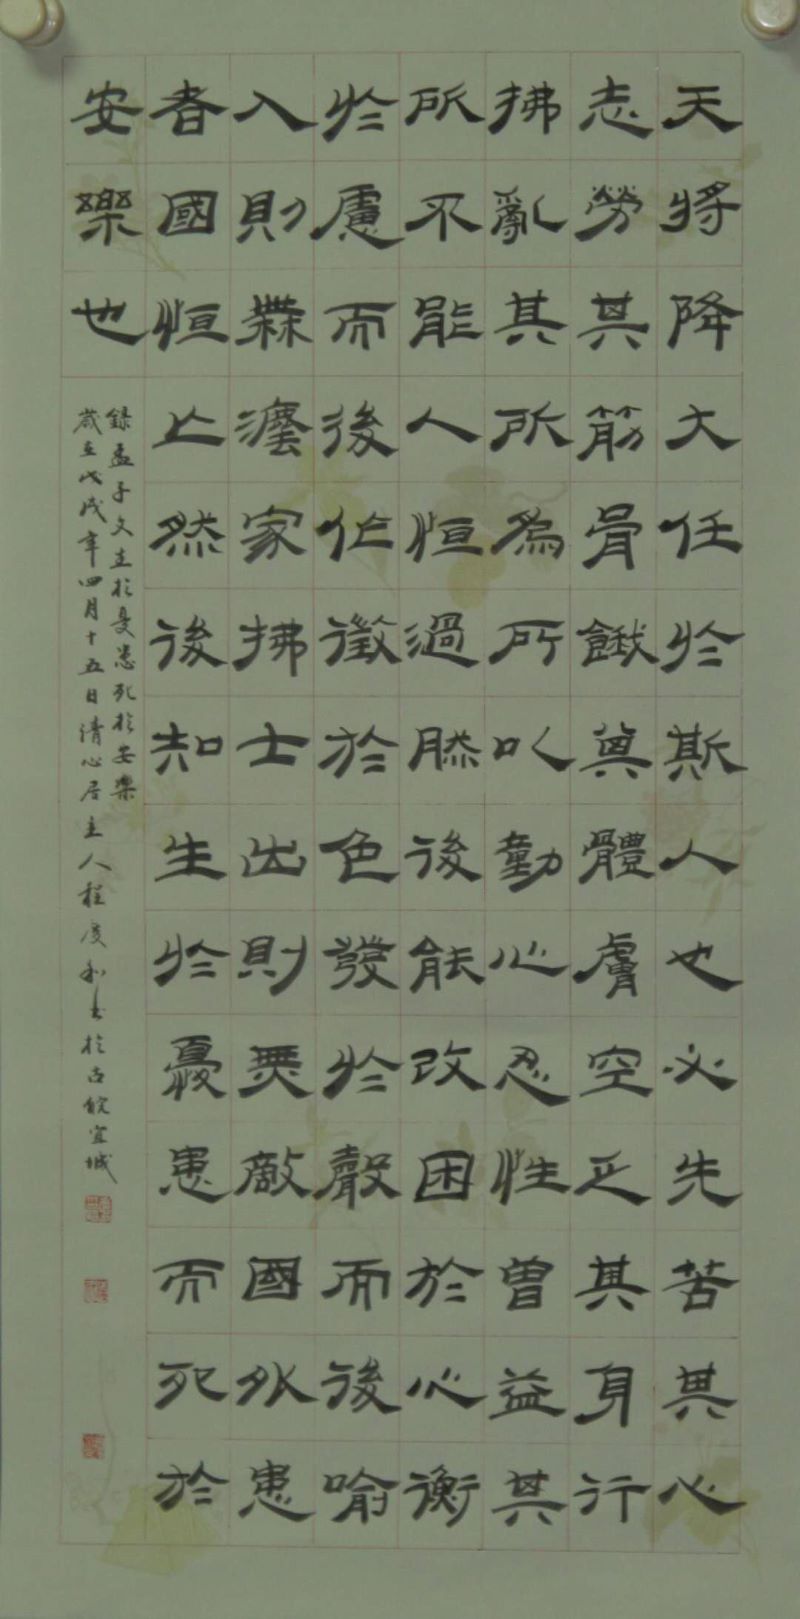 天將降大任於斯人也必先苦其心
志勞其筋骨餓其體膚空乏其身行
拂亂其所為所以動心忍性曾益其
所不能人恒過然後能改困於心衡
於慮而後作徵於色發於聲而後喻
入則無灋家拂士出則無敵國外患
者國恒亡然後知生於憂患而死於
安樂也
錄孟子文生於憂患死於安樂
歲在戊戌年四月十五日清心居主人程度和書於古皖宜城